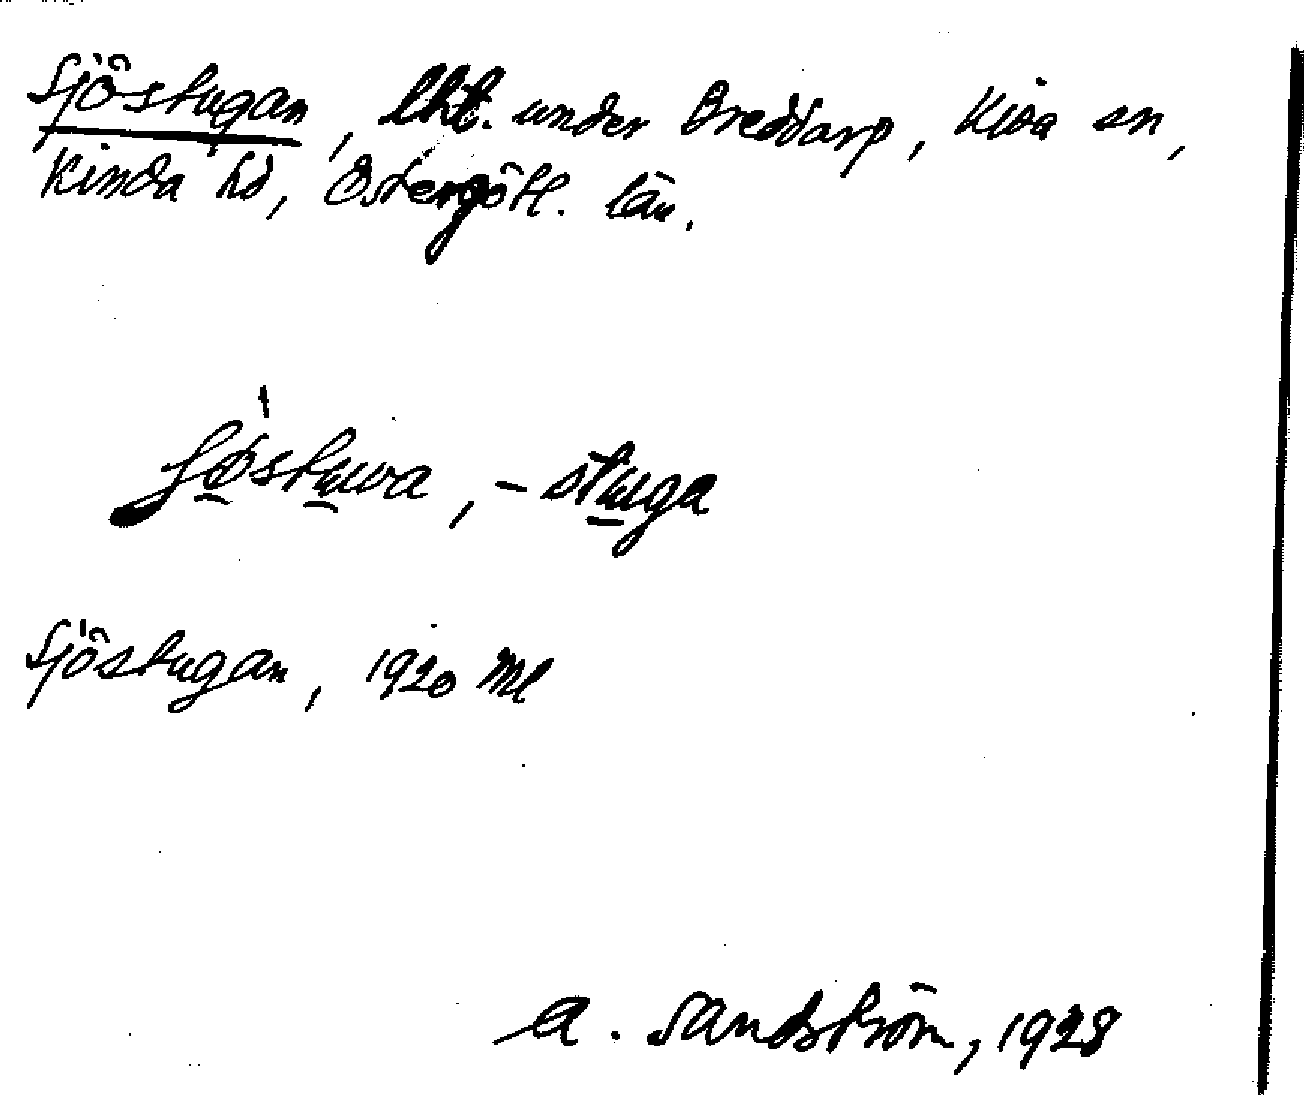 Sjöstugan, lht. under Breddarp, Kisa sn,
Kinda hd, Östergötl. län.
-stuga
Sjöstugan, 1920 Ml
A. Sandström, 1928